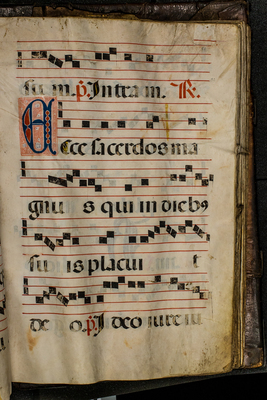 su m. p̃. Intra m. R.
Ecce sacerdos ma
gnu s qui in dieb9
su is placui t
de o. p̃. Ideo iure iu